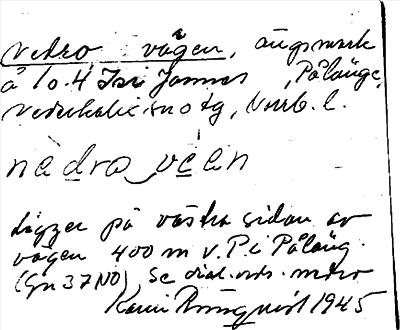 Nedro vägen, ängsmark
å lo. 4 Jannes, Pålänge,
Nederkalix sn otg, Norrb. l.
nẹdra vẹ̄an
ligger på västra sidan av
vägen 400 m v. P i Påläng
(Gn 37 NO), Se dial. ords. nedro
Karin Rönnqvist 1945